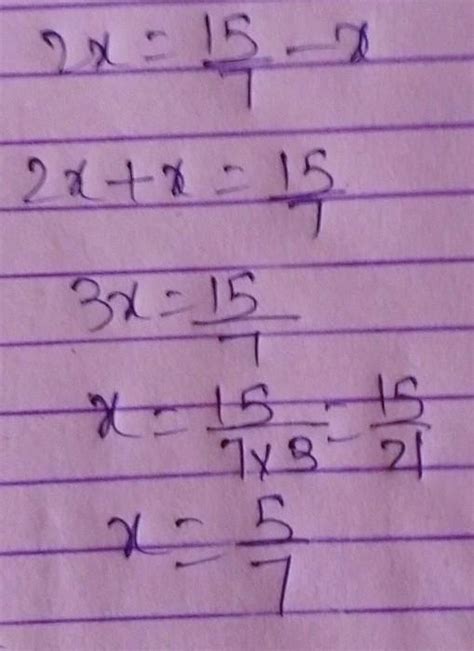 2x = 15/7 - x
2x + x = 15/7
3x = 15/7
x = 15/7x3 = 15/21
x = 5/7